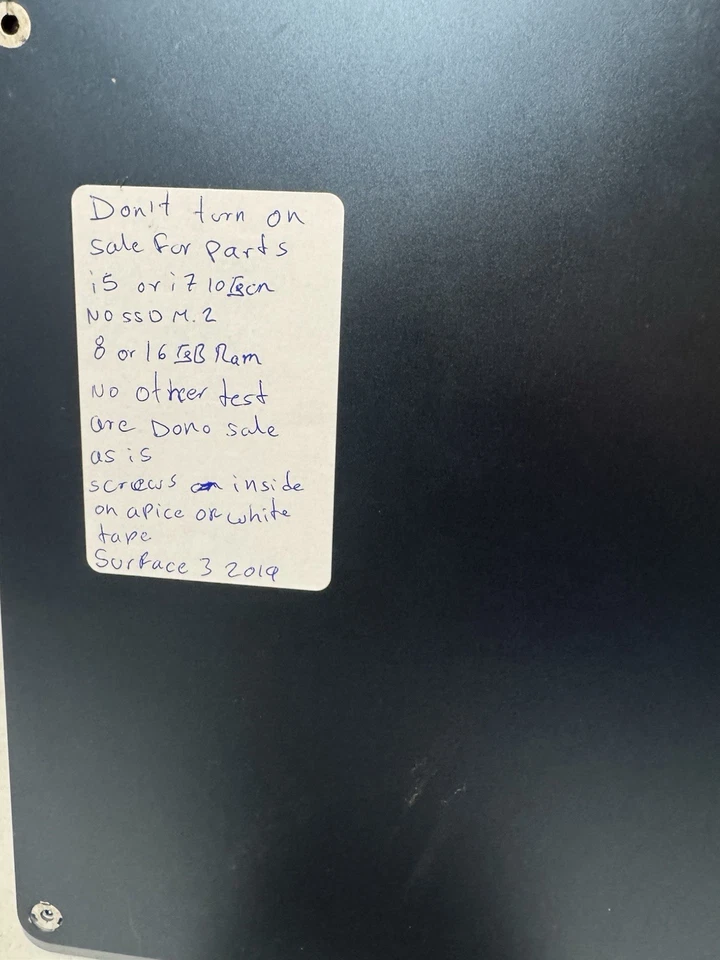 Don't turn on
sale for parts
i5 or i7 10Gen
NO SSD M.2
8 or 16 GB Ram
No other test
are Dono sale
as is
screws on inside
on apice or white
tape
Surface 3 2019